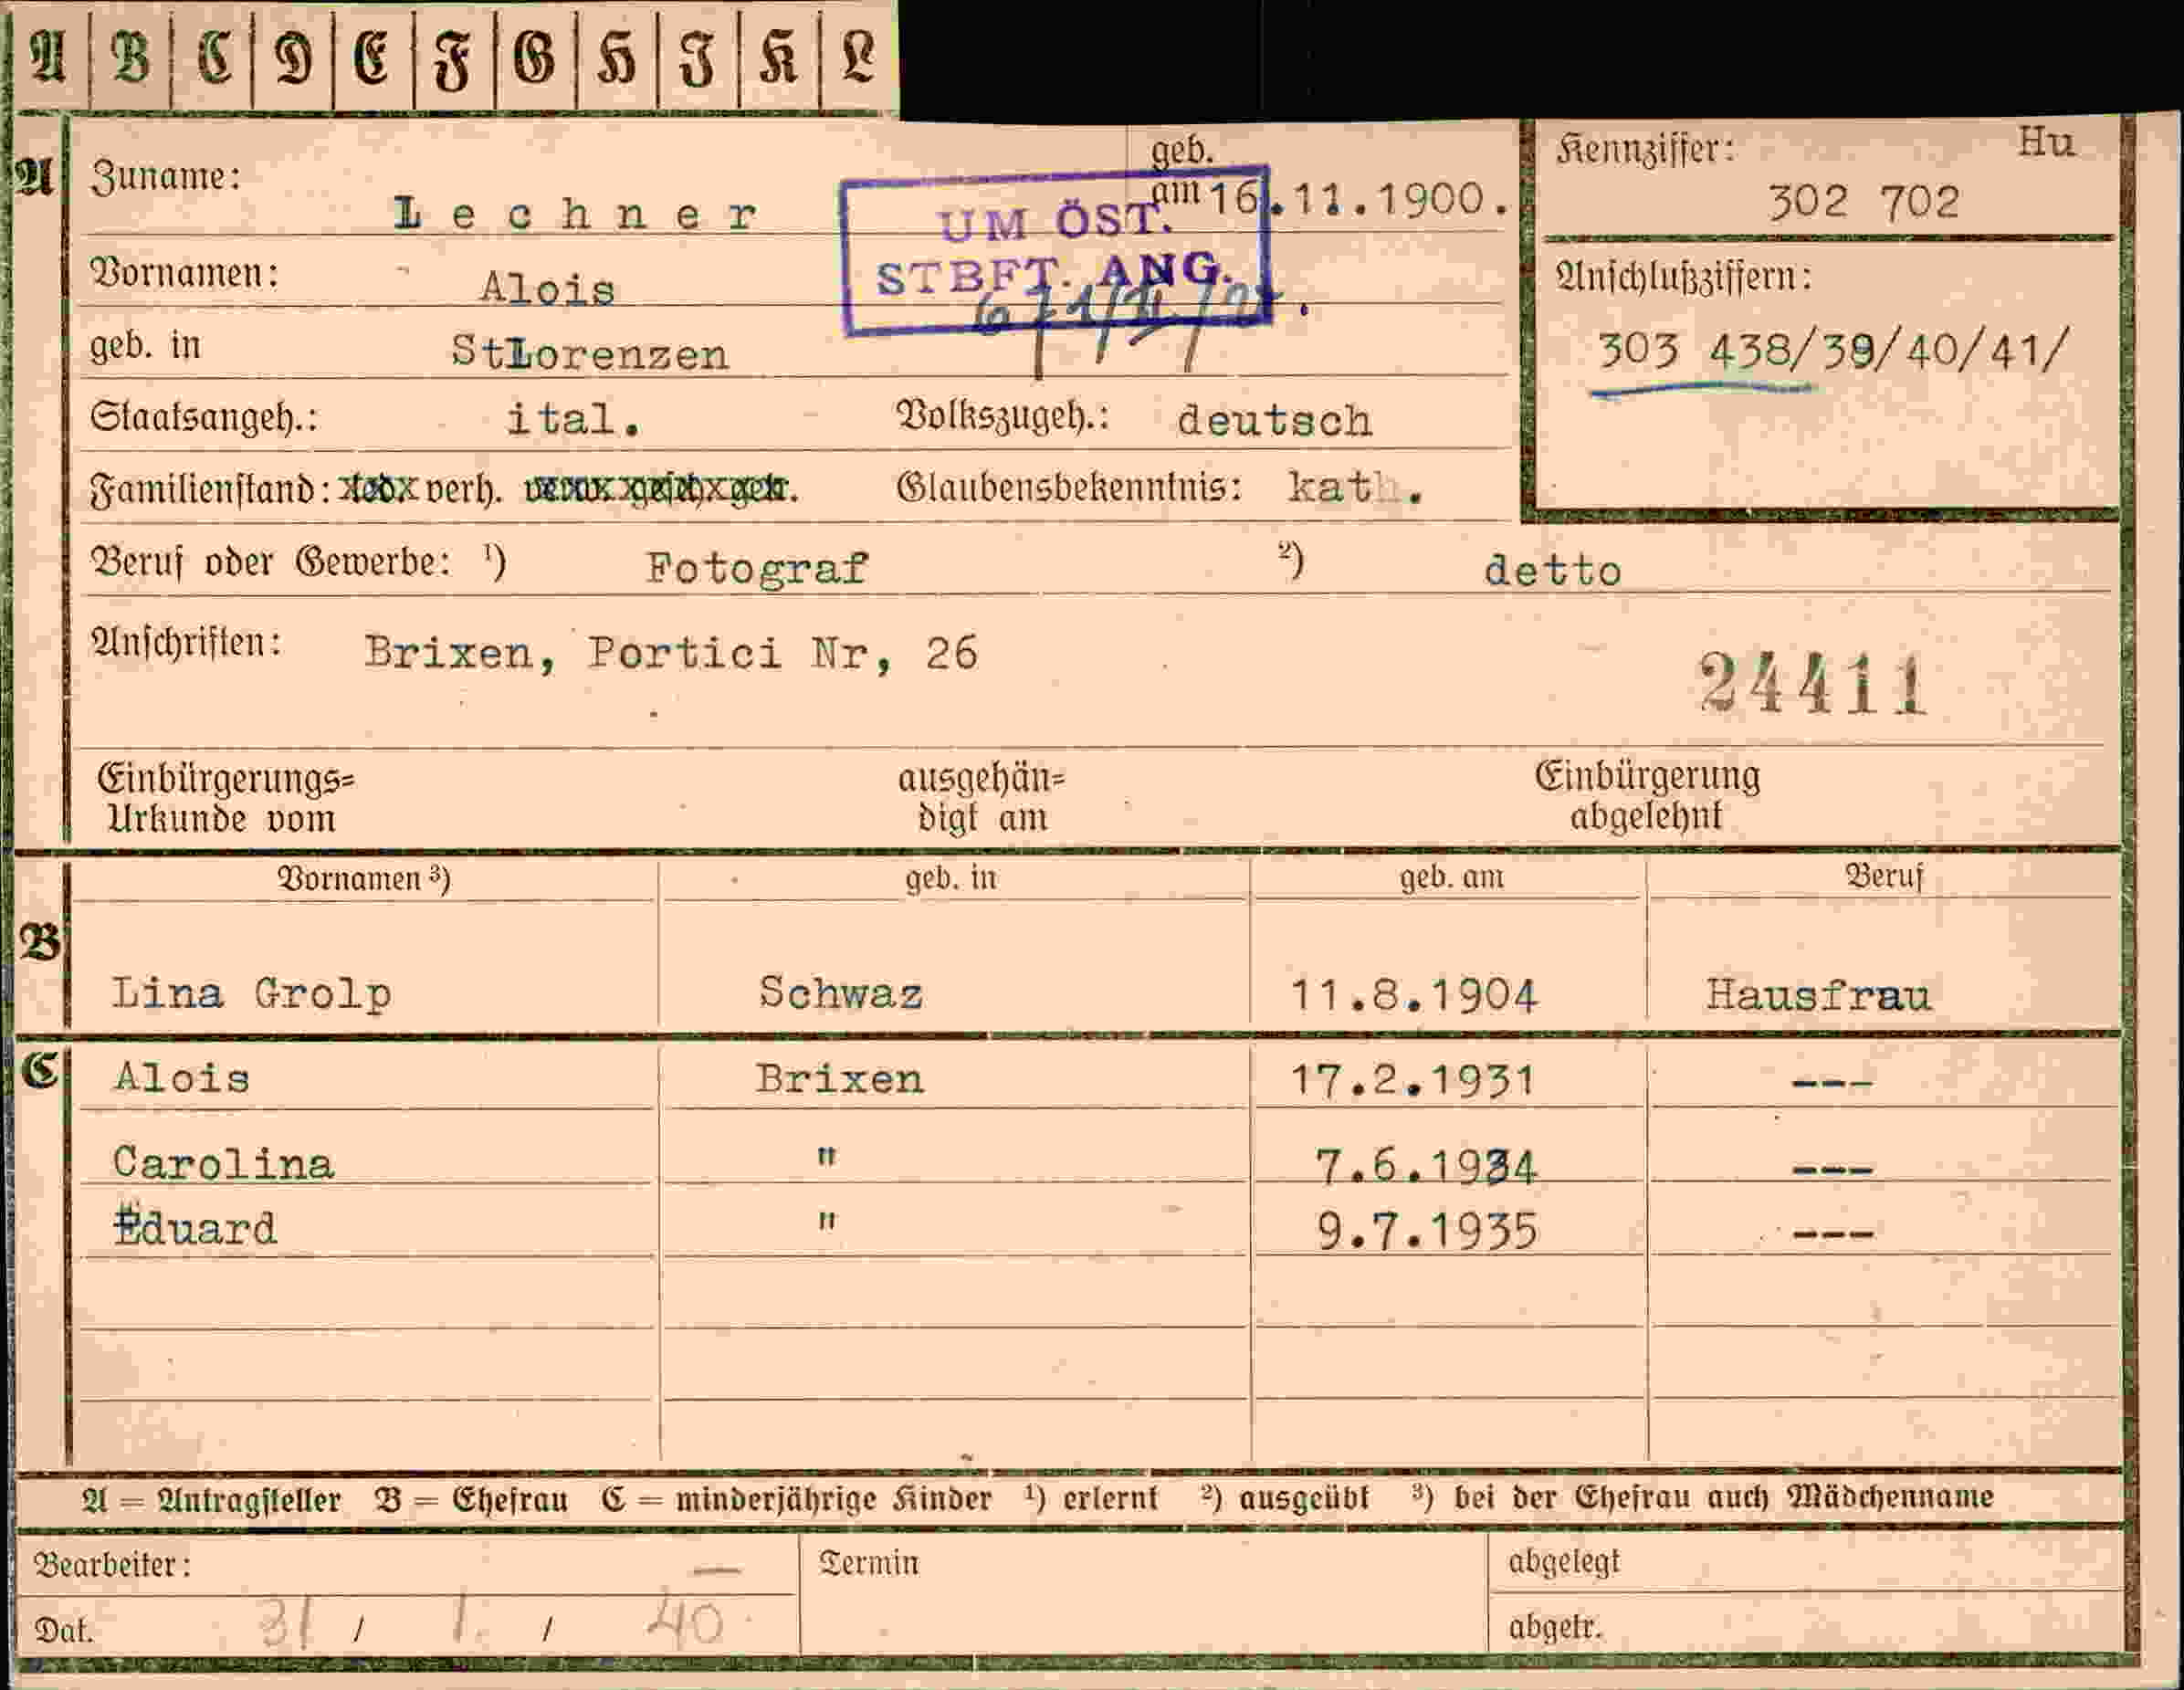 A B C D E F G H I K L
A
Zuname: Lechner
geb. am 16.11.1900.
Kennziffer: Hu
302 702
UM ÖST.
STBFT. ANG.
Vornamen: Alois
Anschlußziffern:
303 438/39/40/41/
geb. in StLorenzen
Staatsangeh.: ital. Volkszugeh.: deutsch
Familienstand: verh. Glaubensbekenntnis: kath.
Beruf oder Gewerbe: ¹) Fotograf ²) detto
Anschriften: Brixen, Portici Nr, 26
24411
Einbürgerungs= ausgehän= Einbürgerung
Urkunde vom digt am abgelehnt
Vornamen ³) geb. in geb. am Beruf
B
Lina Grolp Schwaz 11.8.1904 Hausfrau
C Alois Brixen 17.2.1931 ---
Carolina " 7.6.1934 ---
Eduard " 9.7.1935 ---
A = Antragsteller B = Ehefrau C = minderjährige Kinder ¹) erlernt ²) ausgeübt ³) bei der Ehefrau auch Mädchenname
Bearbeiter: — Termin abgelegt
Dat. 31 / 1. / 40 abgetr.